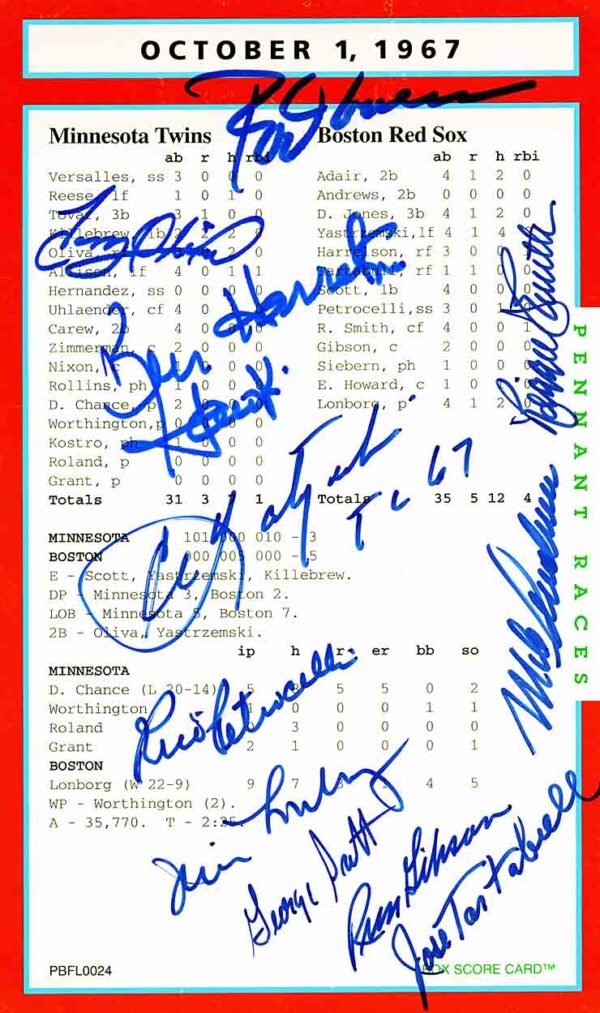 OCTOBER 1, 1967
Minnesota Twins
ab r h rbi
Versalles, ss 3 0 0 0
Reese, lf 1 0 1 0
Tovar, 3b 3 1 0 0
Killebrew, 1b 2 2 2 0
Oliva, rf 2 0
Allison, lf 4 0 1 1
Hernandez, ss 0 0 0 0
Uhlaender, cf 4 0 0
Carew, 2b 4 0 0
Zimmerman, c 2 0 0 0
Nixon, c 1 0 0 0
Rollins, ph 1 0 0 0
D. Chance, p 2 0 0 0
Worthington,p 0 0 0 0
Kostro, ph 0 0
Roland, p 0 0 0 0
Grant, p 0 0 0 0
Totals 31 3 1
Boston Red Sox
ab r h rbi
Adair, 2b 4 1 2 0
Andrews, 2b 0 0 0 0
D. Jones, 3b 4 1 2 0
Yastrzemski,lf 4 1 4
Harrelson, rf 3 0 0
Tartabull, rf 1 1 0
Scott, 1b 4 0 0
Petrocelli,ss 3 0 1 0
R. Smith, cf 4 0 0 1
Gibson, c 2 0 0 0
Siebern, ph 1 0 0 0
E. Howard, c 1 0 0 0
Lonborg, p 4 1 2 0
Totals 35 5 12 4
MINNESOTA 101 000 010 - 3
BOSTON 000 005 000 - 5
E - Scott, Yastrzemski, Killebrew.
DP - Minnesota 3, Boston 2.
LOB - Minnesota 5, Boston 7.
2B - Oliva, Yastrzemski.
ip h r er bb so
MINNESOTA
D. Chance (L 20-14) 5 8 5 5 0 2
Worthington 1 0 0 0 1 1
Roland 3 0 0 0 0
Grant 2 1 0 0 0 1
BOSTON
Lonborg (W 22-9) 9 7 3 1 4 5
WP - Worthington (2).
A - 35,770. T - 2:25.
PENNANT RACES
Tony Oliva
Ken Harrelson
Hawk
Reggie Smith
Carl Yastrzemski
TC 67
Mike Andrews
Rico Petrocelli
Jim Lonborg
George Scott
Russ Gibson
Jose Tartabull
PBFL0024
BOX SCORE CARD™